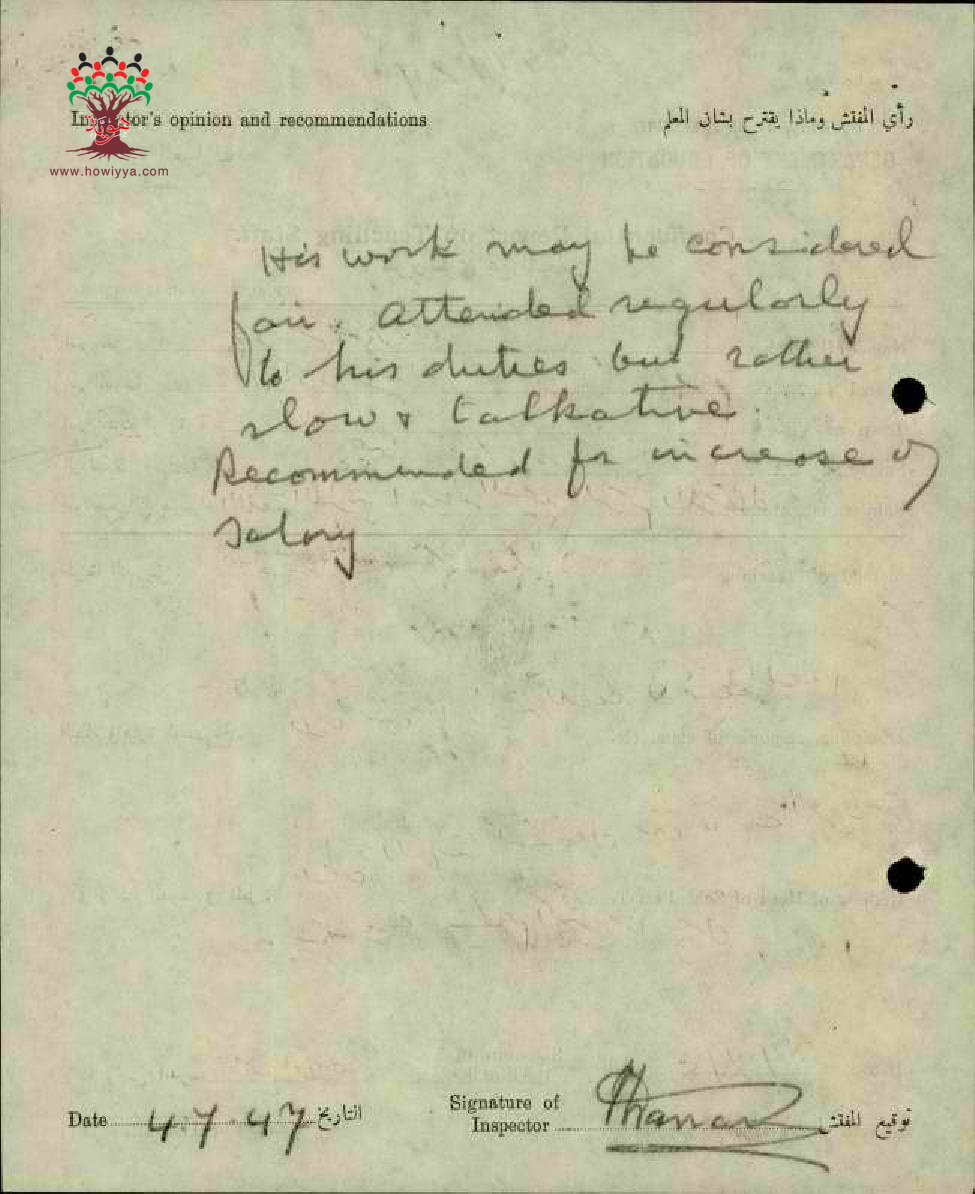 Inspector's opinion and recommendations
رأي المفتش وماذا يقترح بشان المعلم
www.howiyya.com
His work may be considered
fair. Attended regularly
to his duties but rather
slow & talkative.
Recommended for increase of
salary
Date 4.7.47 التاريخ
Signature of
Inspector توقيع المفتش